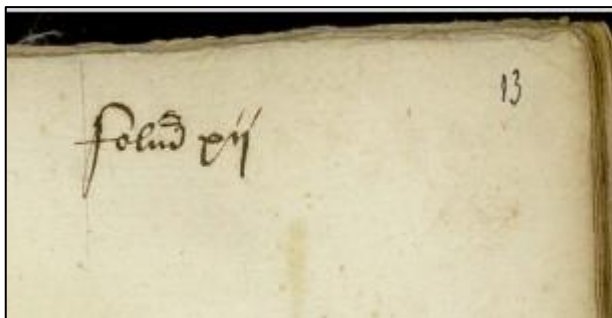 13
folud xij